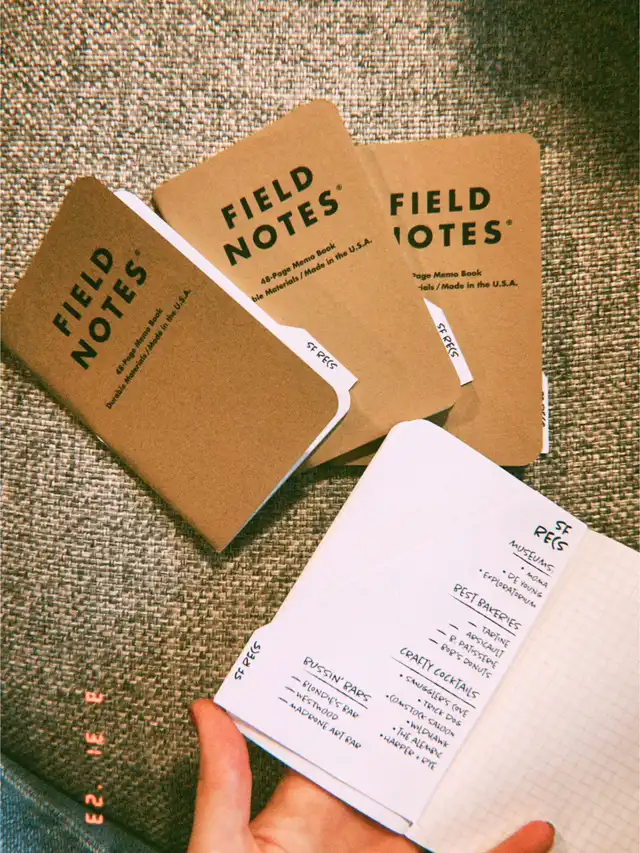 FIELD
NOTES®
48-Page Memo Book
Durable Materials / Made in the U.S.A.
SF RECS
FIELD
NOTES®
48-Page Memo Book
ble Materials / Made in the U.S.A.
SF RECS
FIELD
NOTES®
Page Memo Book
ials / Made in the U.S.A.
SF
RECS
MUSEUMS
• MOMA
• DE YOUNG
• EXPLORATORIUM
BEST BAKERIES
— TARTINE
— ARSICAULT
— B. PATISSERIE
— BOB'S DONUTS
CRAFTY COCKTAILS
• SMUGGLER'S COVE
• TRICK DOG
• COMSTOCK SALOON
• WILDHAWK
• THE ALEMBIC
• HARPER + RYE
BUSSIN' BARS
— BLONDIE'S BAR
— WESTWOOD
— MADRONE ART BAR
SF RECS